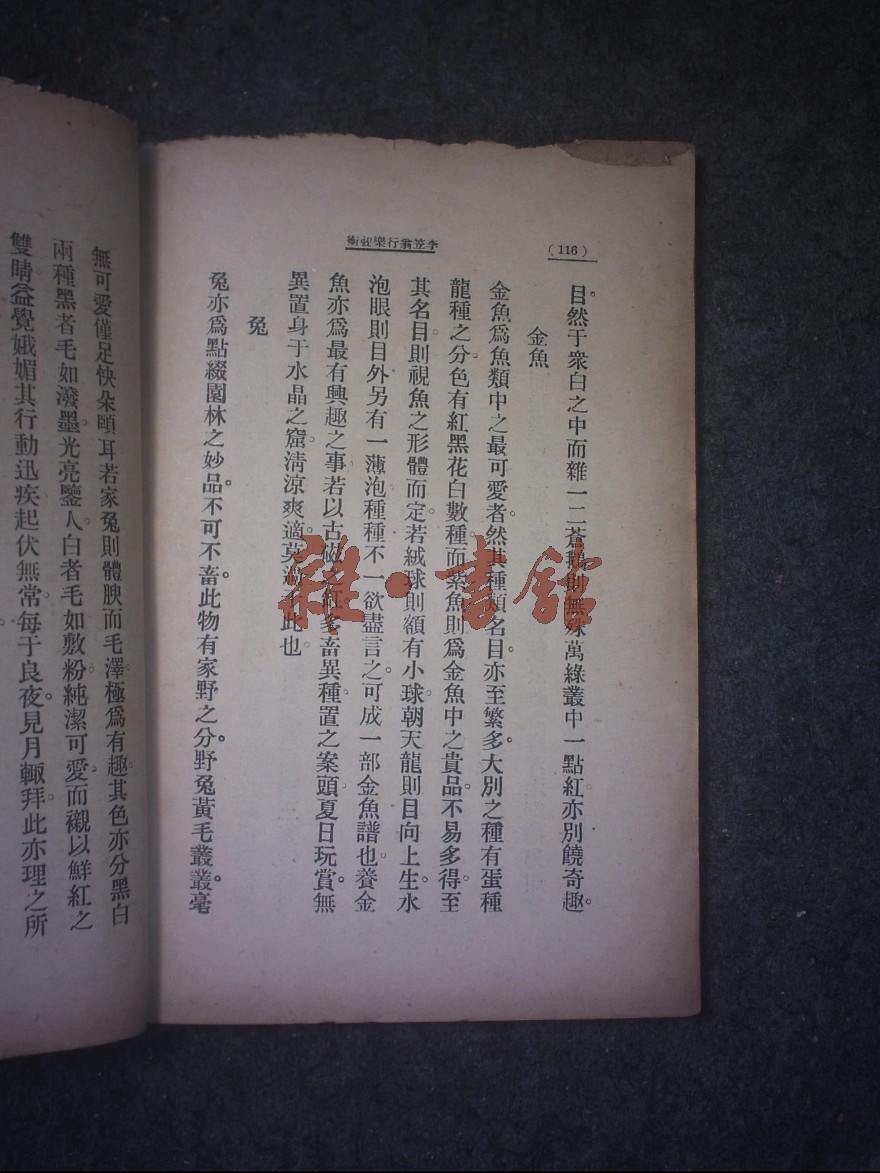 (116)
李笠翁行樂祕術
目。然于衆白之中而雜一二蒼鵝則無殊萬綠叢中一點紅亦別饒奇趣。
金魚
金魚爲魚類中之最可愛者。然其種類名目。亦至繁多。大別之種有蛋種
龍種之分。色有紅黑花白數種。而紫魚則爲金魚中之貴品。不易多得。至
其名目。則視魚之形體而定。若絨球則額有小球。朝天龍則目向上生。水
泡眼則目外另有一薄泡。種種不一。欲盡言之。可成一部金魚譜也。養金
魚亦爲最有興趣之事。若以古磁之缸。多畜異種。置之案頭。夏日玩賞。無
異置身于水晶之窟。清涼爽適。莫此也
兔
兔亦爲點綴園林之妙品。不可不畜。此物有家野之分。野兔黃毛叢叢。毫
無可愛。僅足快朵頤耳。若家兔則體腴而毛澤。極爲有趣。其色亦分黑白
兩種。黑者毛如潑墨。光亮鑒人。白者毛如敷粉。純潔可愛。而襯以鮮紅之
雙睛。益覺娥媚。其行動迅疾。起伏無常。每于良夜。見月輙拜。此亦理之所
雜·書館